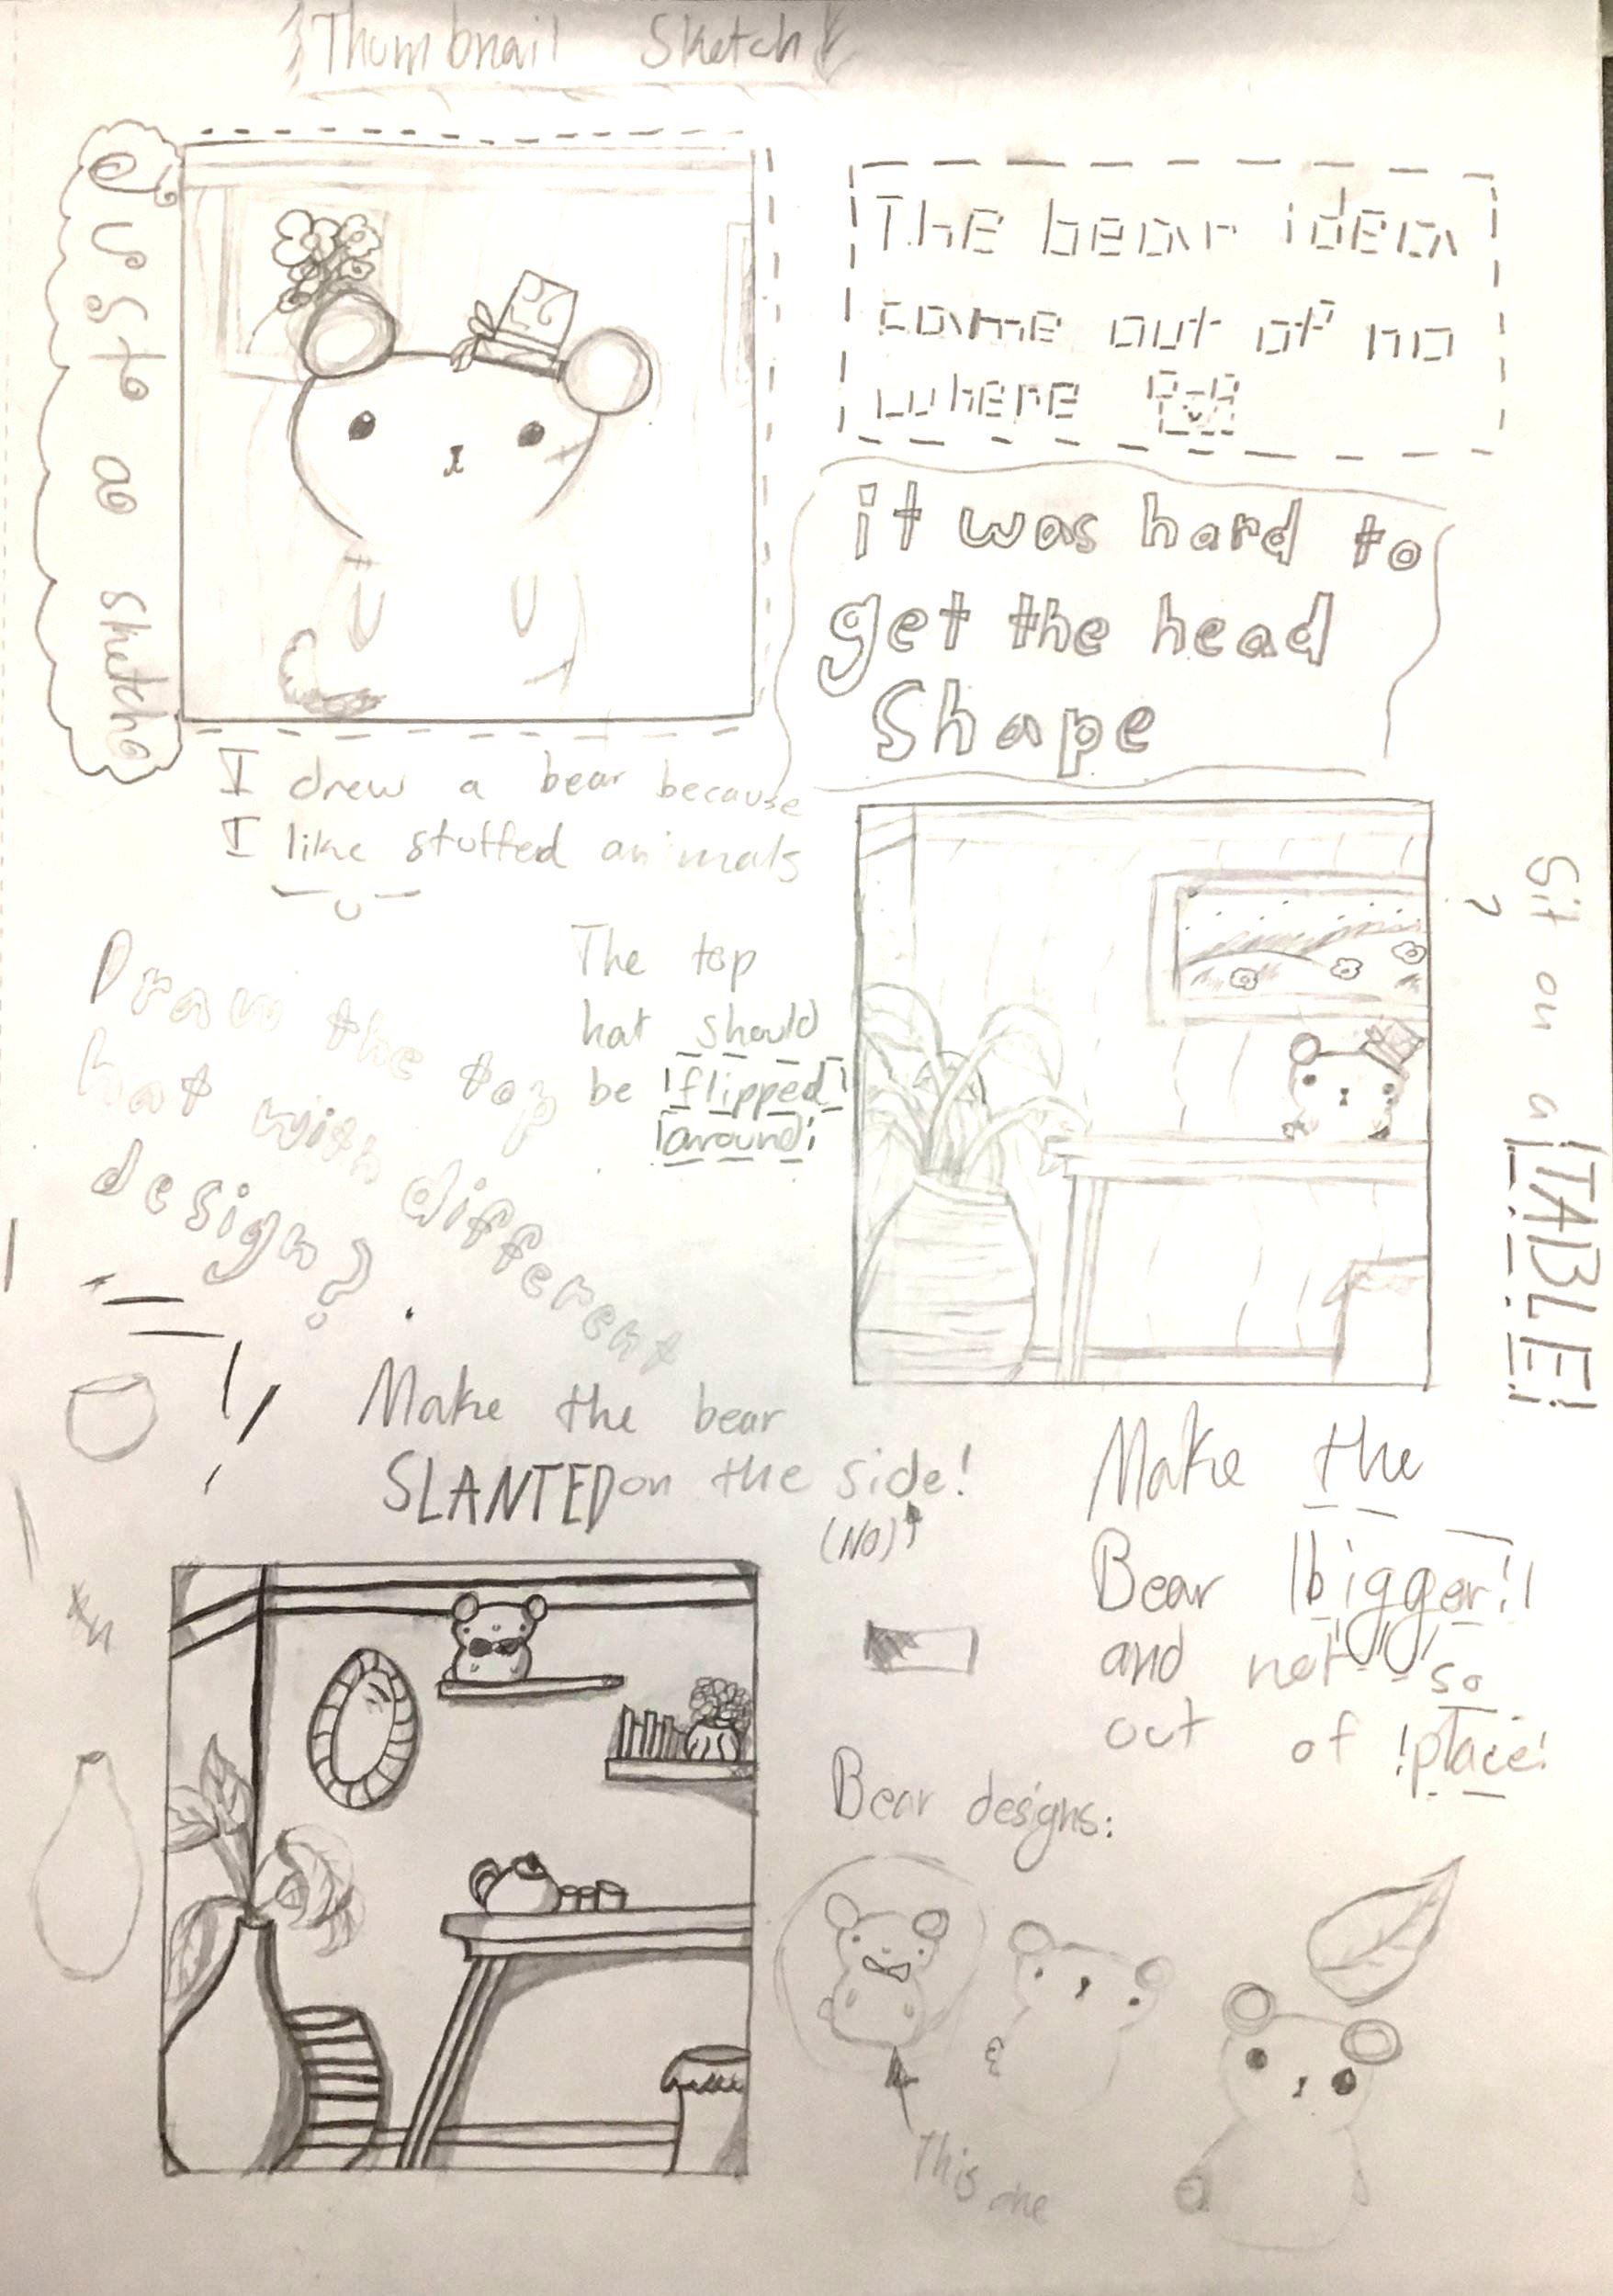 Thumbnail Sketch
Just a sketch
The bear idea
came out of no
where
it was hard to
get the head
Shape
I drew a bear because
I like stuffed animals
Sit on a TABLE!
?
The top
hat should
be !flipped!
!around!
Draw the top
hat with different
design?
Make the bear
SLANTED on the side!
(NO)
Make the
Bear !bigger!!
and not so
out of !place!
Bear designs:
This one